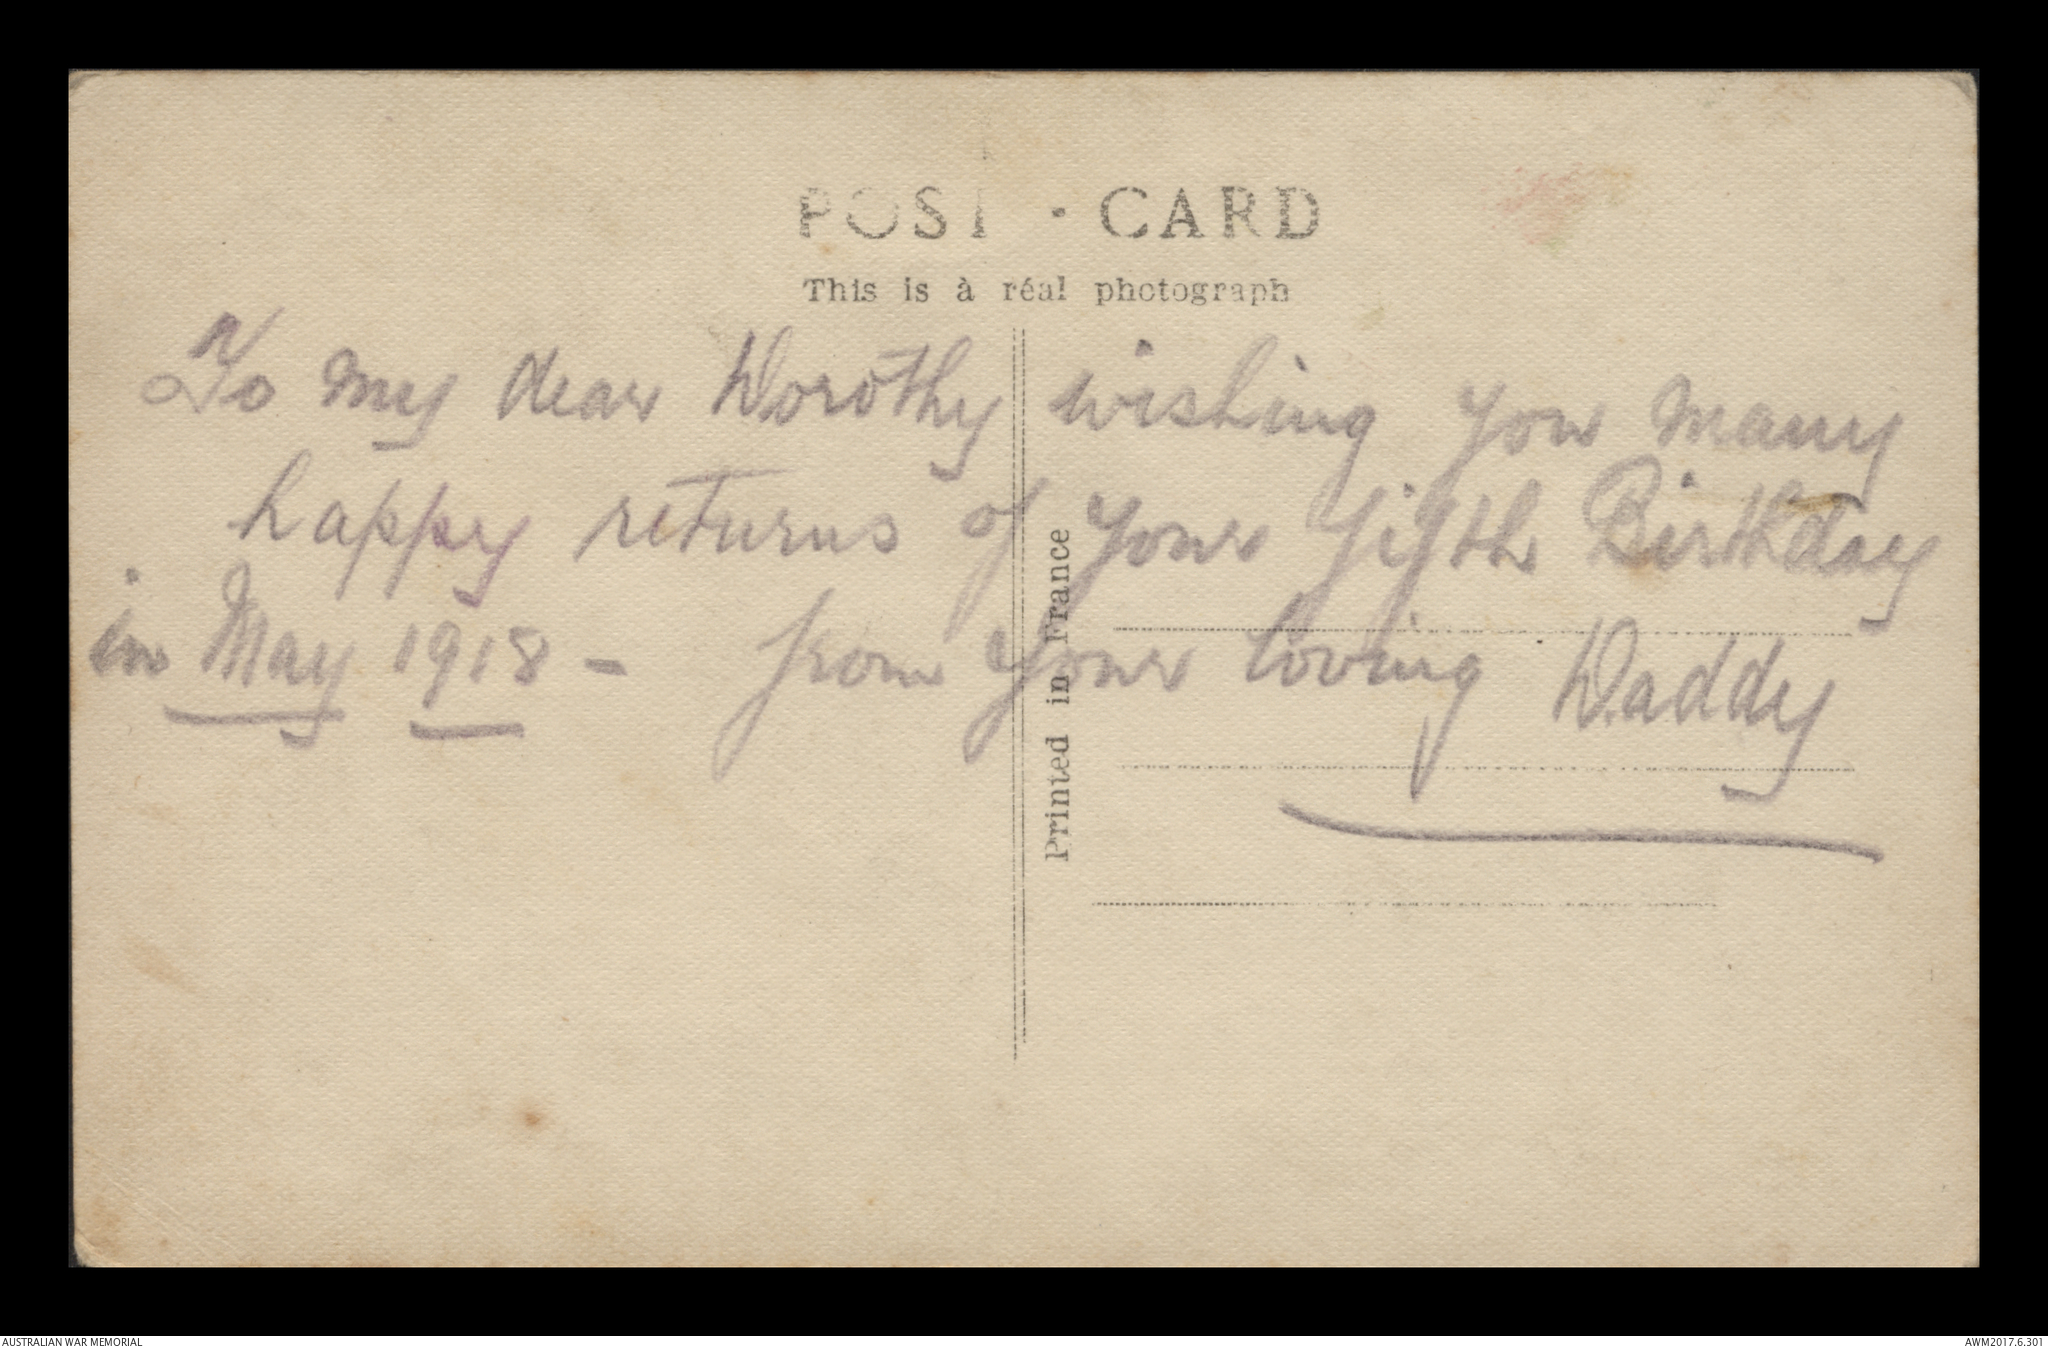 POST · CARD
This is à réal photograph
To my dear Dorothy wishing you many
happy returns of your fifth Birthday
in May 1918 - from your loving Daddy
Printed in France
AUSTRALIAN WAR MEMORIAL
AWM2017.6.301